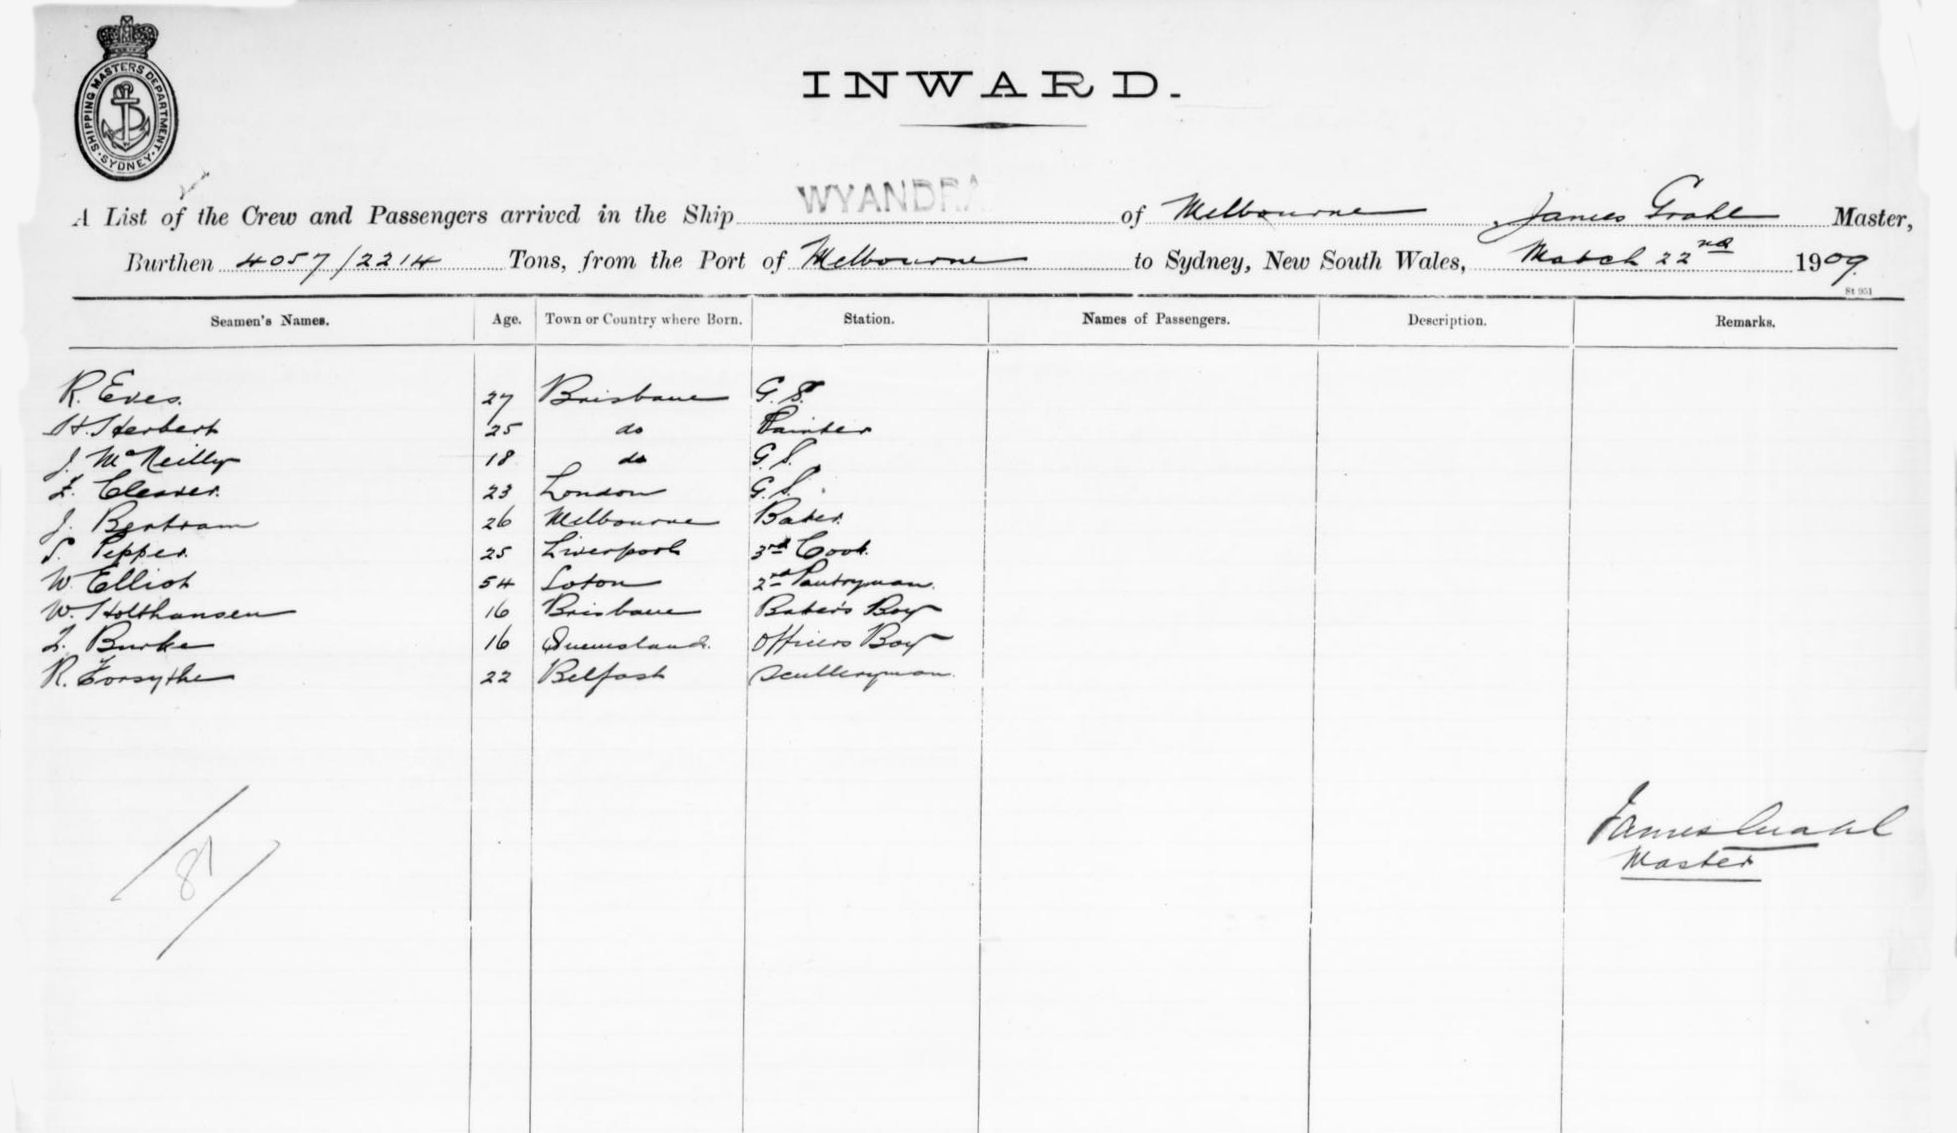 SHIPPING MASTERS DEPARTMENT · SYDNEY ·
INWARD.
A List of the Crew and Passengers arrived in the Ship WYANDRA of Melbourne, James Grahl Master,
Burthen 4057/2214 Tons, from the Port of Melbourne to Sydney, New South Wales, March 22nd 1909.
St 951
Seamen's Names. Age. Town or Country where Born. Station. Names of Passengers. Description. Remarks.
R. Eves. 27 Brisbane G. S.
H. Herbert 25 do Painter
J. McNeilly 18 do G. S.
F. Cleaver. 23 London G. S.
J. Bertram 26 Melbourne Baker.
S. Pepper. 25 Liverpool 3rd Cook.
W. Elliot 54 2nd Pantryman.
W. Holthausen 16 Brisbane Baker's Boy
Burke 16 Queensland. Officers Boy
R. Forsythe 22 Belfast Sculleryman.
James Grahl
Master
81